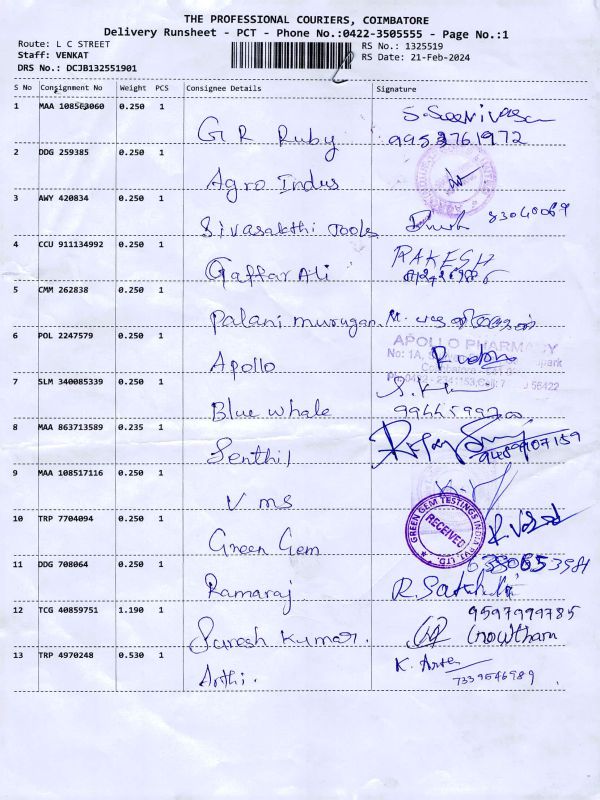 THE PROFESSIONAL COURIERS, COIMBATORE
Delivery Runsheet - PCT - Phone No.:0422-3505555 - Page No.:1
Route: L C STREET
Staff: VENKAT
DRS No.: DCJB132551901
RS No.: 1325519
RS Date: 21-Feb-2024
S No Consignment No Weight PCS Consignee Details Signature
1 MAA 108563060 0.250 1
G R Ruby
9953761972
2 DDG 259385 0.250 1
Agro Indus
3 AWY 420834 0.250 1
Sivasakthi Tools
83040069
4 CCU 911134992 0.250 1
Gaffar Ali
RAKESH
5 CMM 262838 0.250 1
Palani murugan
6 POL 2247579 0.250 1
Apollo
APOLLO PHARMACY
No: 1A,
7 SLM 340085339 0.250 1
Blue whale
8 MAA 863713589 0.235 1
Senthil
9489107159
9 MAA 108517116 0.250 1
V ms
10 TRP 7704094 0.250 1
Green Gem
GREEN GEM TESTINGS INDIA PVT. LTD.
RECEIVED
11 DDG 708064 0.250 1
Ramaraj
12 TCG 40859751 1.190 1
Suresh Kumar.
9597999785
Gnowtham
13 TRP 4970248 0.530 1
Arthi.
7339546989